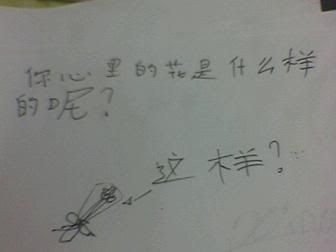 你心里的花是什么样
的呢？
这样？